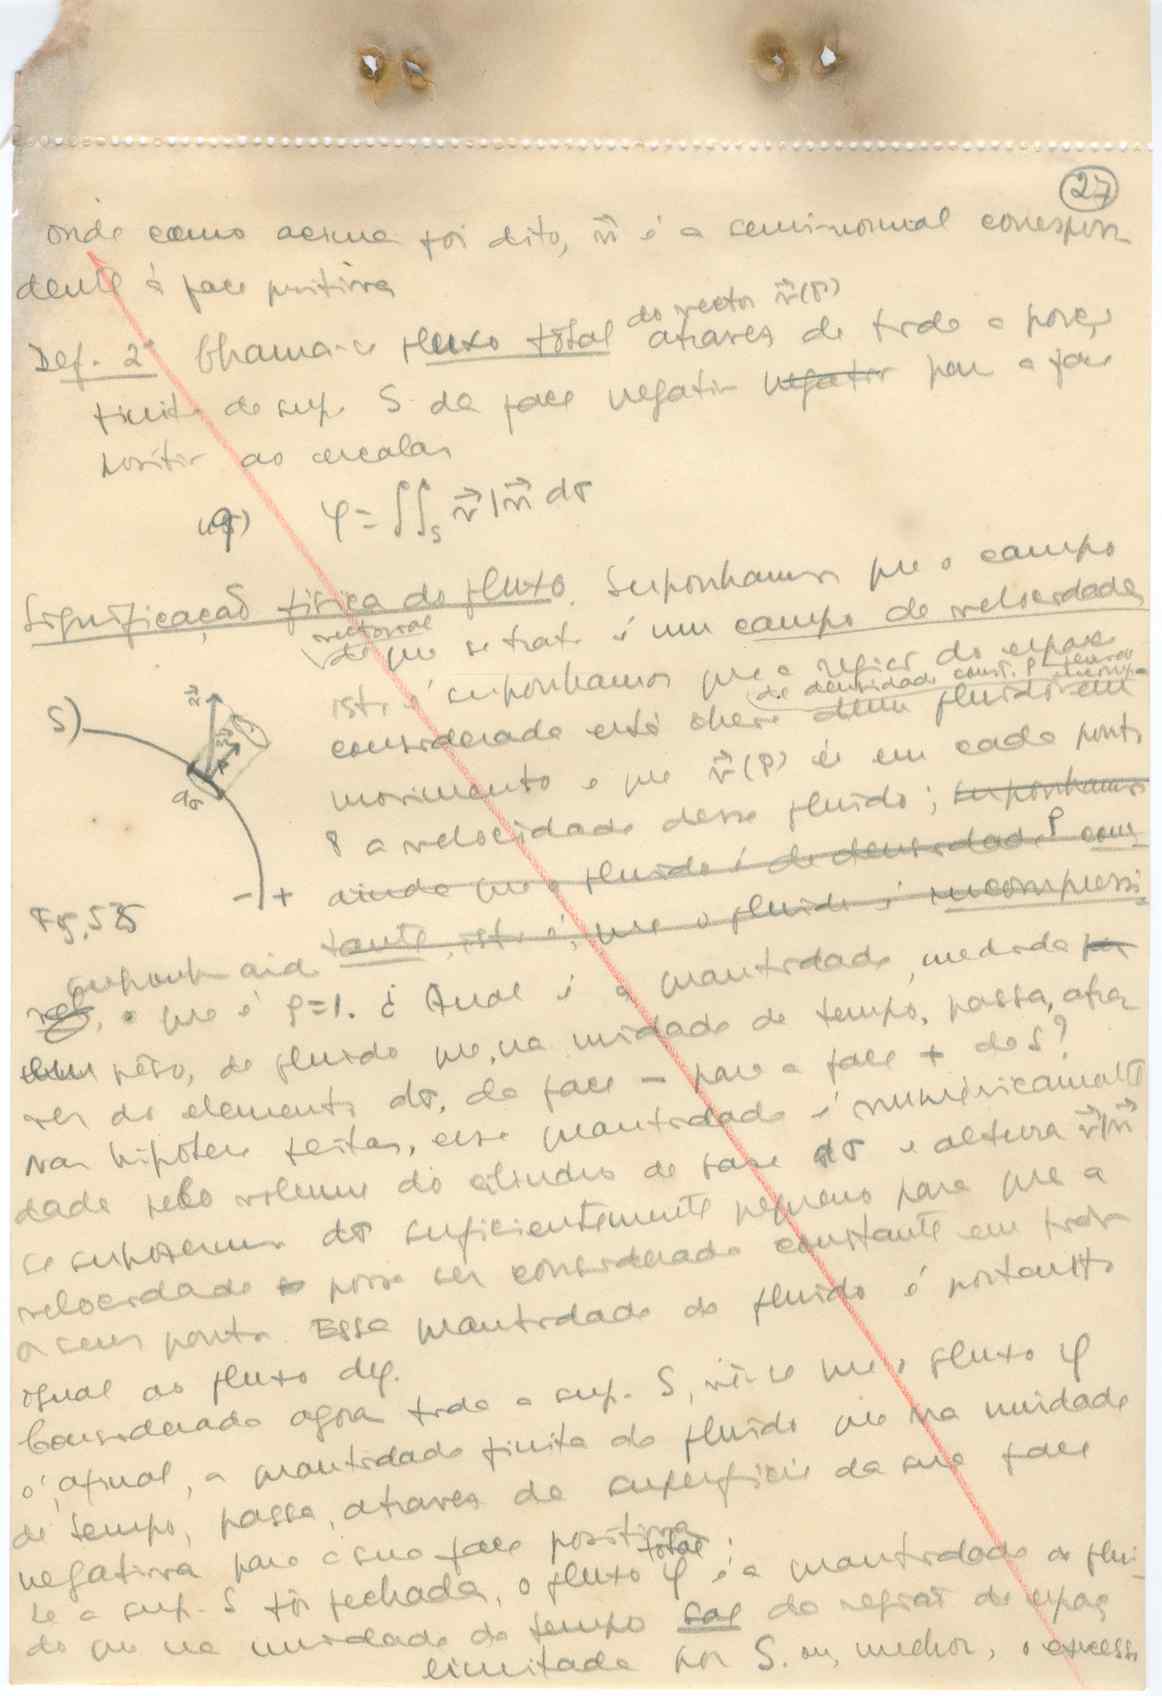 27
onde como acima foi dito, n⃗ é a semi-normal correspon
dente à face positiva
do vector v⃗(P)
Def. 2ª Chama-se fluxo total através de toda a porção
finita de sup. S da face negativa negativa para a face
positiva ao escalar
φ = ∬_S v⃗|n⃗ dσ
Significação física do fluxo. Suponhamos que o campo
vectorial
de que se trata é um campo de velocidades,
isto é suponhamos que a região do espaço
de densidade const. ρ
considerada está cheia dum fluido em
movimento e que v⃗(P) é em cada ponto
P a velocidade desse fluido; suponhamos
ainda que o fluido é de densidade ρ cons
tante, isto é, que o fluido é incompressí
S)
v⃗
n⃗
P
dσ
- +
Fig. 58
vel, e que é ρ=1. ¿ Qual é a quantidade, medida por
peso, de fluido que, na unidade de tempo, passa, atra
vés do elemento dσ, da face - para a face + de S?
Nas hipóteses feitas, essa quantidade é numèricamente
dada pelo volume do cilindro de base dσ e altura v⃗|n⃗
se supusermos dσ suficientemente pequeno para que a
velocidade possa ser considerada constante em todos
os seus pontos. Essa quantidade de fluido é portanto
igual ao fluxo dφ.
Considerado agora toda a sup. S, vê-se que o fluxo φ
é, afinal, a quantidade finita de fluido que na unidade
de tempo, passa, através da superfície da sua face
negativa para a sua face positiva
total
Se a sup. S fôr fechada, o fluxo φ é a quantidade de flui-
do que na unidade de tempo sai da região do espaço
limitada por S. ou, melhor, o excesso